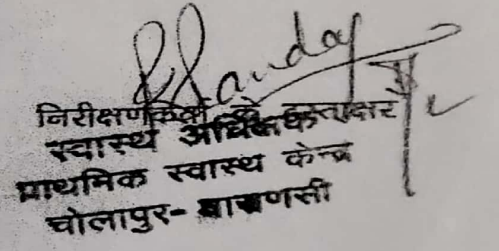 निरीक्षणकर्ता के हस्ताक्षर
स्वास्थ अधिक्षक
प्राथमिक स्वास्थ केन्द्र
चोलापुर- वाराणसी